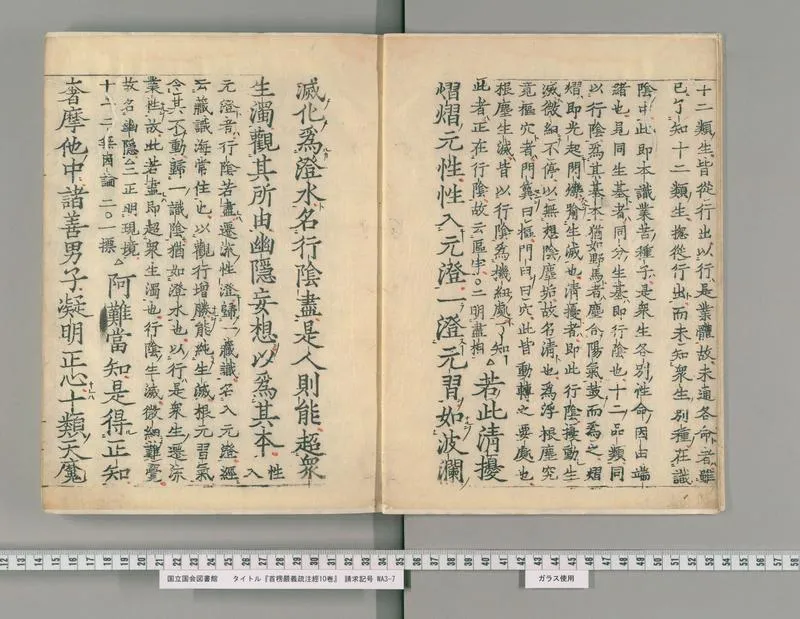 十二類生皆從行出以行是業體故未通各命者雖
已了知十二類生揔從行出而未知衆生別種在識
陰中此即本識業苦種子是衆生各別性命因由端
緒也見同生基者同分生基即行陰也十二品類同
以行陰爲其基本猶如野馬者塵合陽氣鼓而爲之熠
熠即光起閃爍猶生滅也清擾者即此行陰擾動生
滅微細不停以無想陰塵垢故名清也爲浮根塵究
竟樞穴者門簨曰樞門臼曰穴此皆動轉之要處也
根塵生滅皆以行陰爲機紐處了知
此者正在行陰故云區宇〇二明盡相 若此清擾
熠熠元性性入元澄一澄元習如波瀾
滅化爲澄水名行陰盡是人則能超衆
生濁觀其所由幽隱妄想以爲其本 性入
元澄者行陰若盡遷流性澄歸一藏識名入元澄經
云藏識海常住也以觀行增勝能純生滅根元習氣
令其不動歸一識陰猶如澄水也以行是衆生遷流
業性故此若盡即超衆生濁也行陰生滅微細難覺
故名幽隱 三正明現境
十 無因論 二〇一摽 阿難當知是得正知
奢摩他中諸善男子凝明正心十類天魔
国立国会図書館 タイトル『首楞嚴義疏注經10巻』 請求記号 WA3-7
ガラス使用